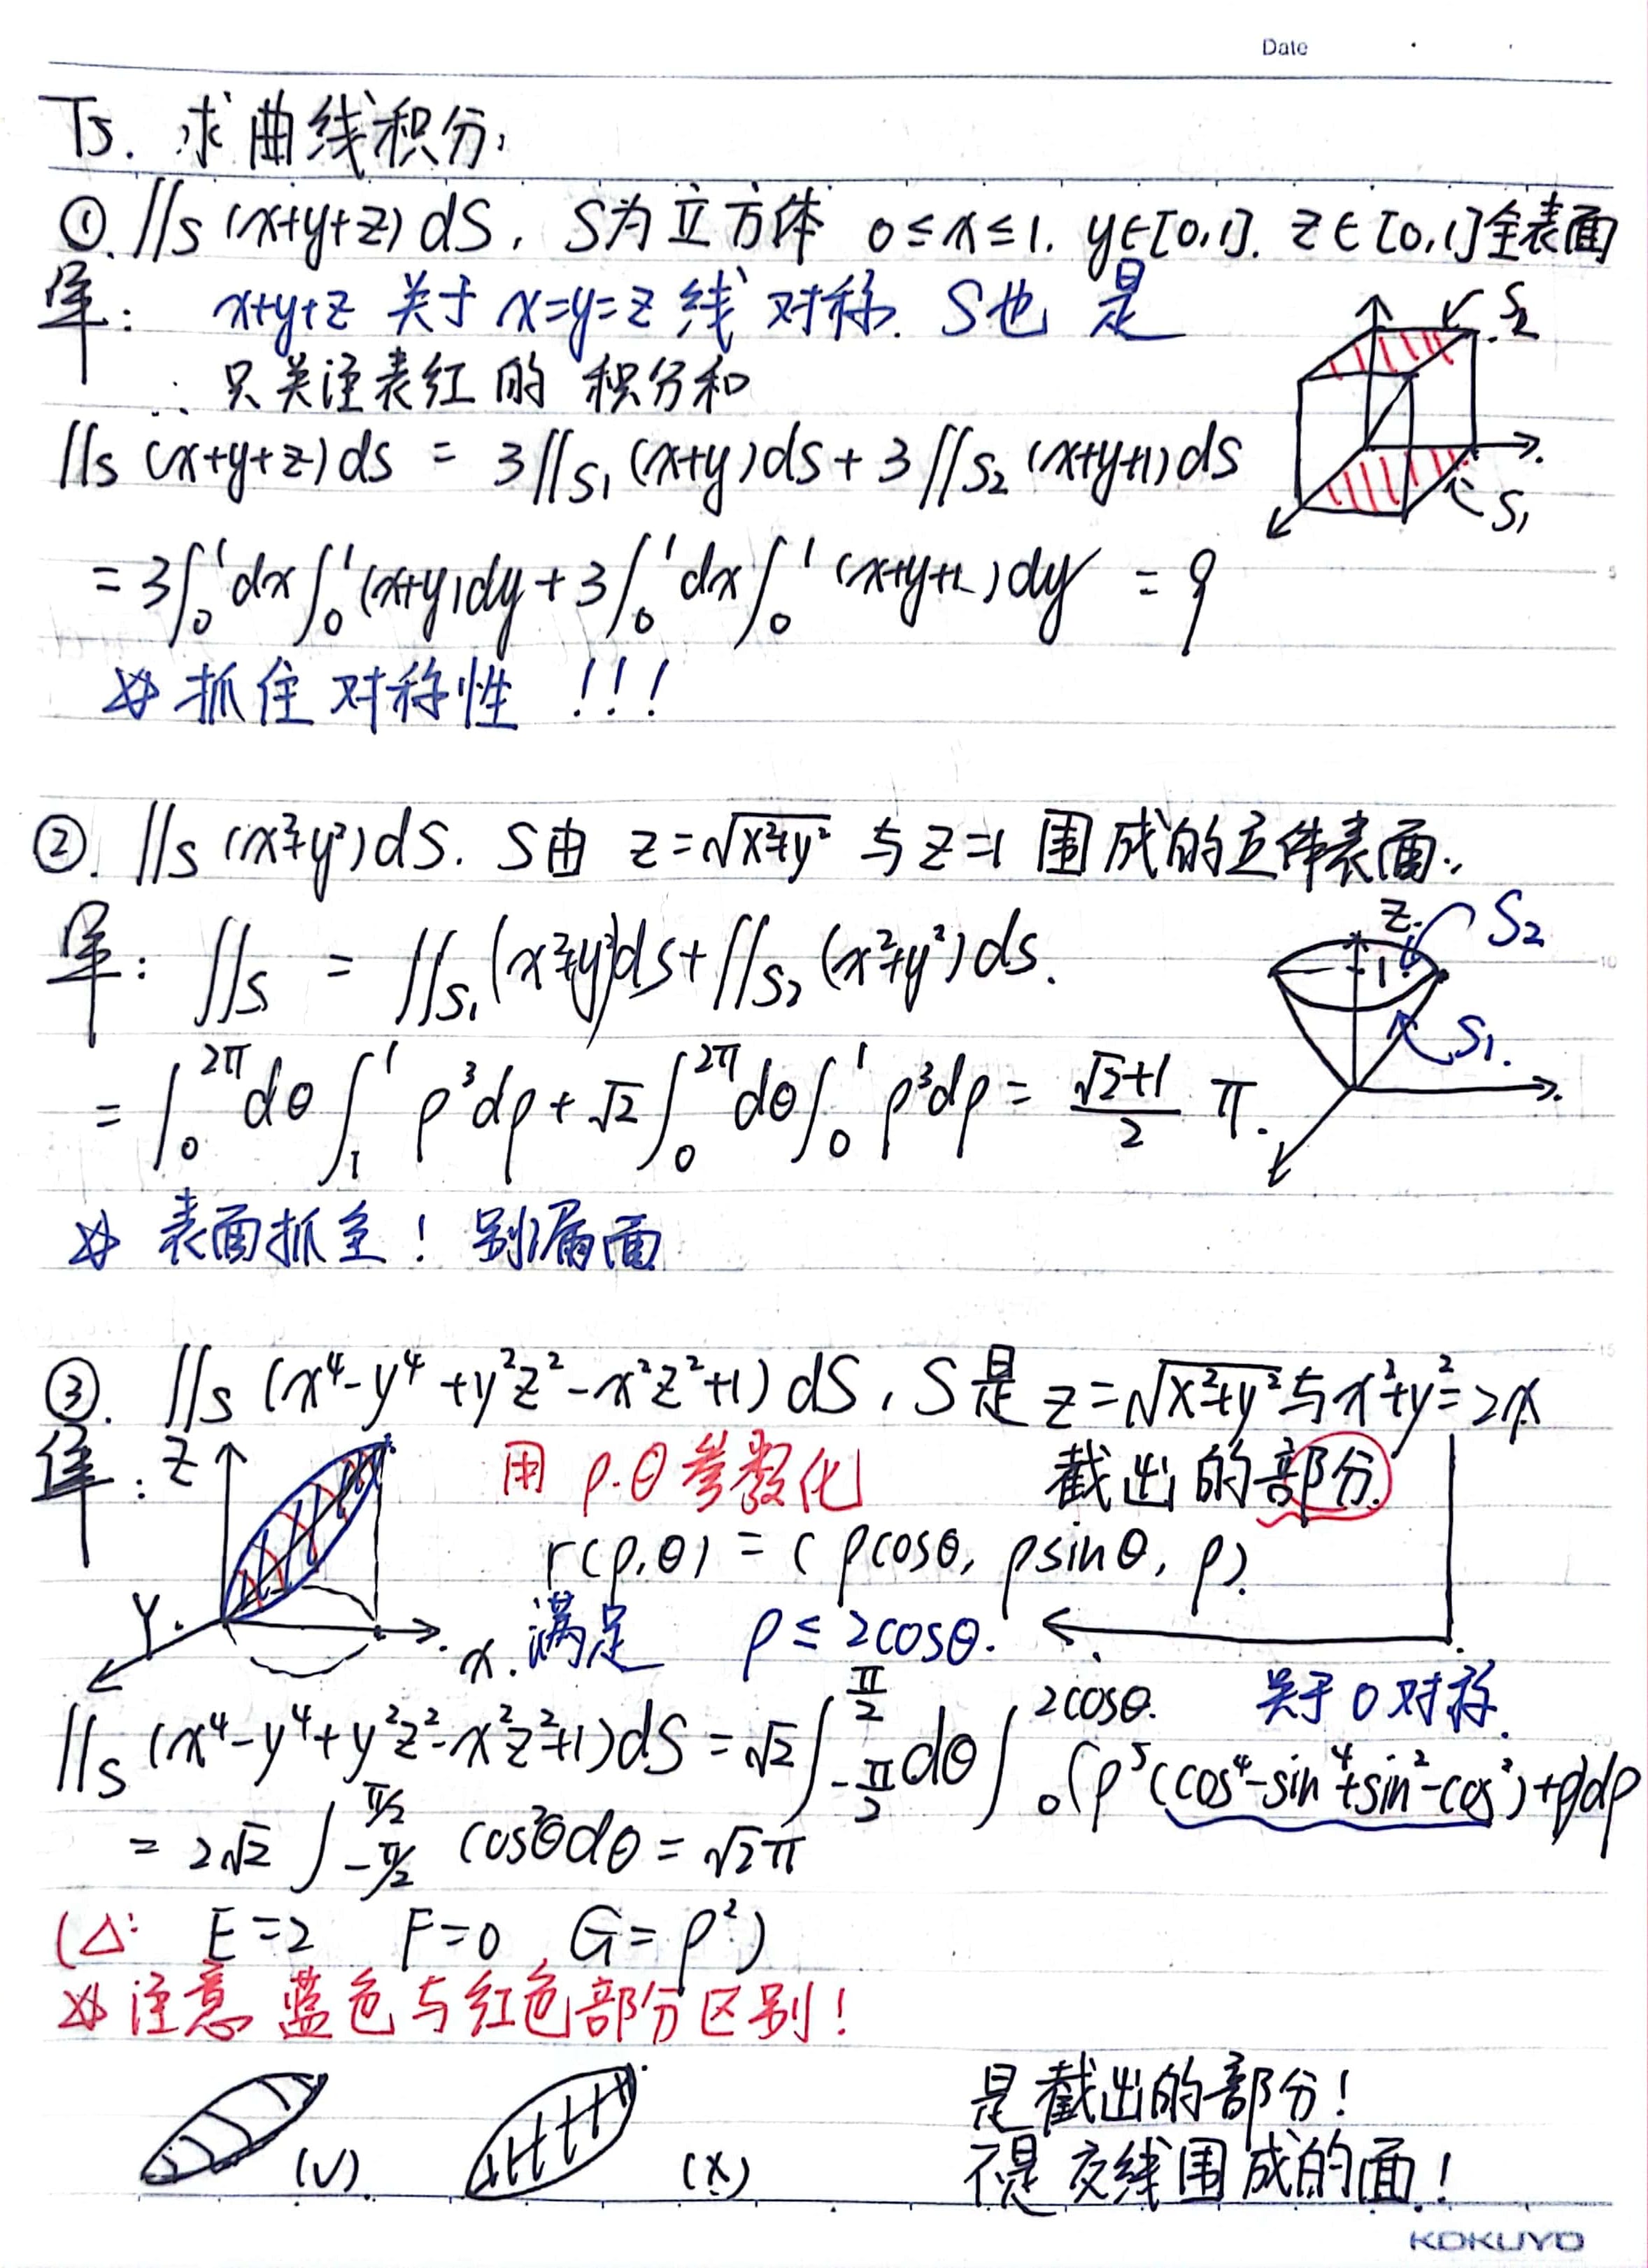 Date
T5. 求曲线积分,
①. ∬s (x+y+z) dS, S为立方体 0≤x≤1. y∈[0,1]. z∈[0,1]全表面
解: x+y+z 关于 x=y=z 线 对称. S也是
S2
∴ 只关注表红的 积分和
∬s (x+y+z)ds = 3∬S1 (x+y)ds + 3∬S2 (x+y+1)ds
S1
= 3∫₀¹dx∫₀¹(x+y)dy + 3∫₀¹dx∫₀¹(x+y+1)dy = 9
抓住 对称性 !!!
②. ∬s (x²+y²)dS. S由 z=√(x²+y²) 与z=1 围成的立体表面.
z S2
解: ∬s = ∬S1 (x²+y²)ds + ∬S2 (x²+y²)ds.
1
S1.
= ∫₀^2π dθ ∫₁¹ ρ³dρ + √2 ∫₀^2π dθ ∫₀¹ ρ³dρ = (√2+1)/2 π.
表面抓全! 别漏面
③. ∬s (x⁴-y⁴+y²z²-x²z²+1) dS, S是 z=√(x²+y²)与x²+y²=2x
解: z 用 ρ.θ参数化 截出的部分.
r(ρ,θ) = (ρcosθ, ρsinθ, ρ).
Y. x. 满足 ρ≤2cosθ.
关于0对称.
∬s (x⁴-y⁴+y²z²-x²z²+1)dS = √2∫_{-π/2}^{π/2} dθ∫₀^{2cosθ.} (ρ⁵(cos⁴-sin⁴+sin²-cos²)+ρ)dρ
= 2√2 ∫_{-π/2}^{π/2} cos²θdθ = √2π
(Δ: E=2 F=0 G=ρ²)
注意 蓝色与红色部分区别!
是截出的部分!
(√) (×) 不是 交线围成的面!
KOKUYO